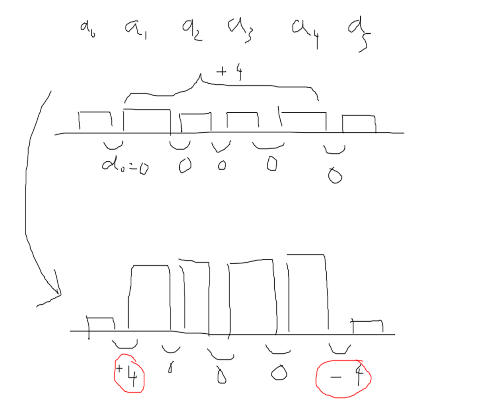 a₀ a₁ a₂ a₃ a₄ a₅
+4
d₀=0 0 0 0 0
+4 0 0 0 -4